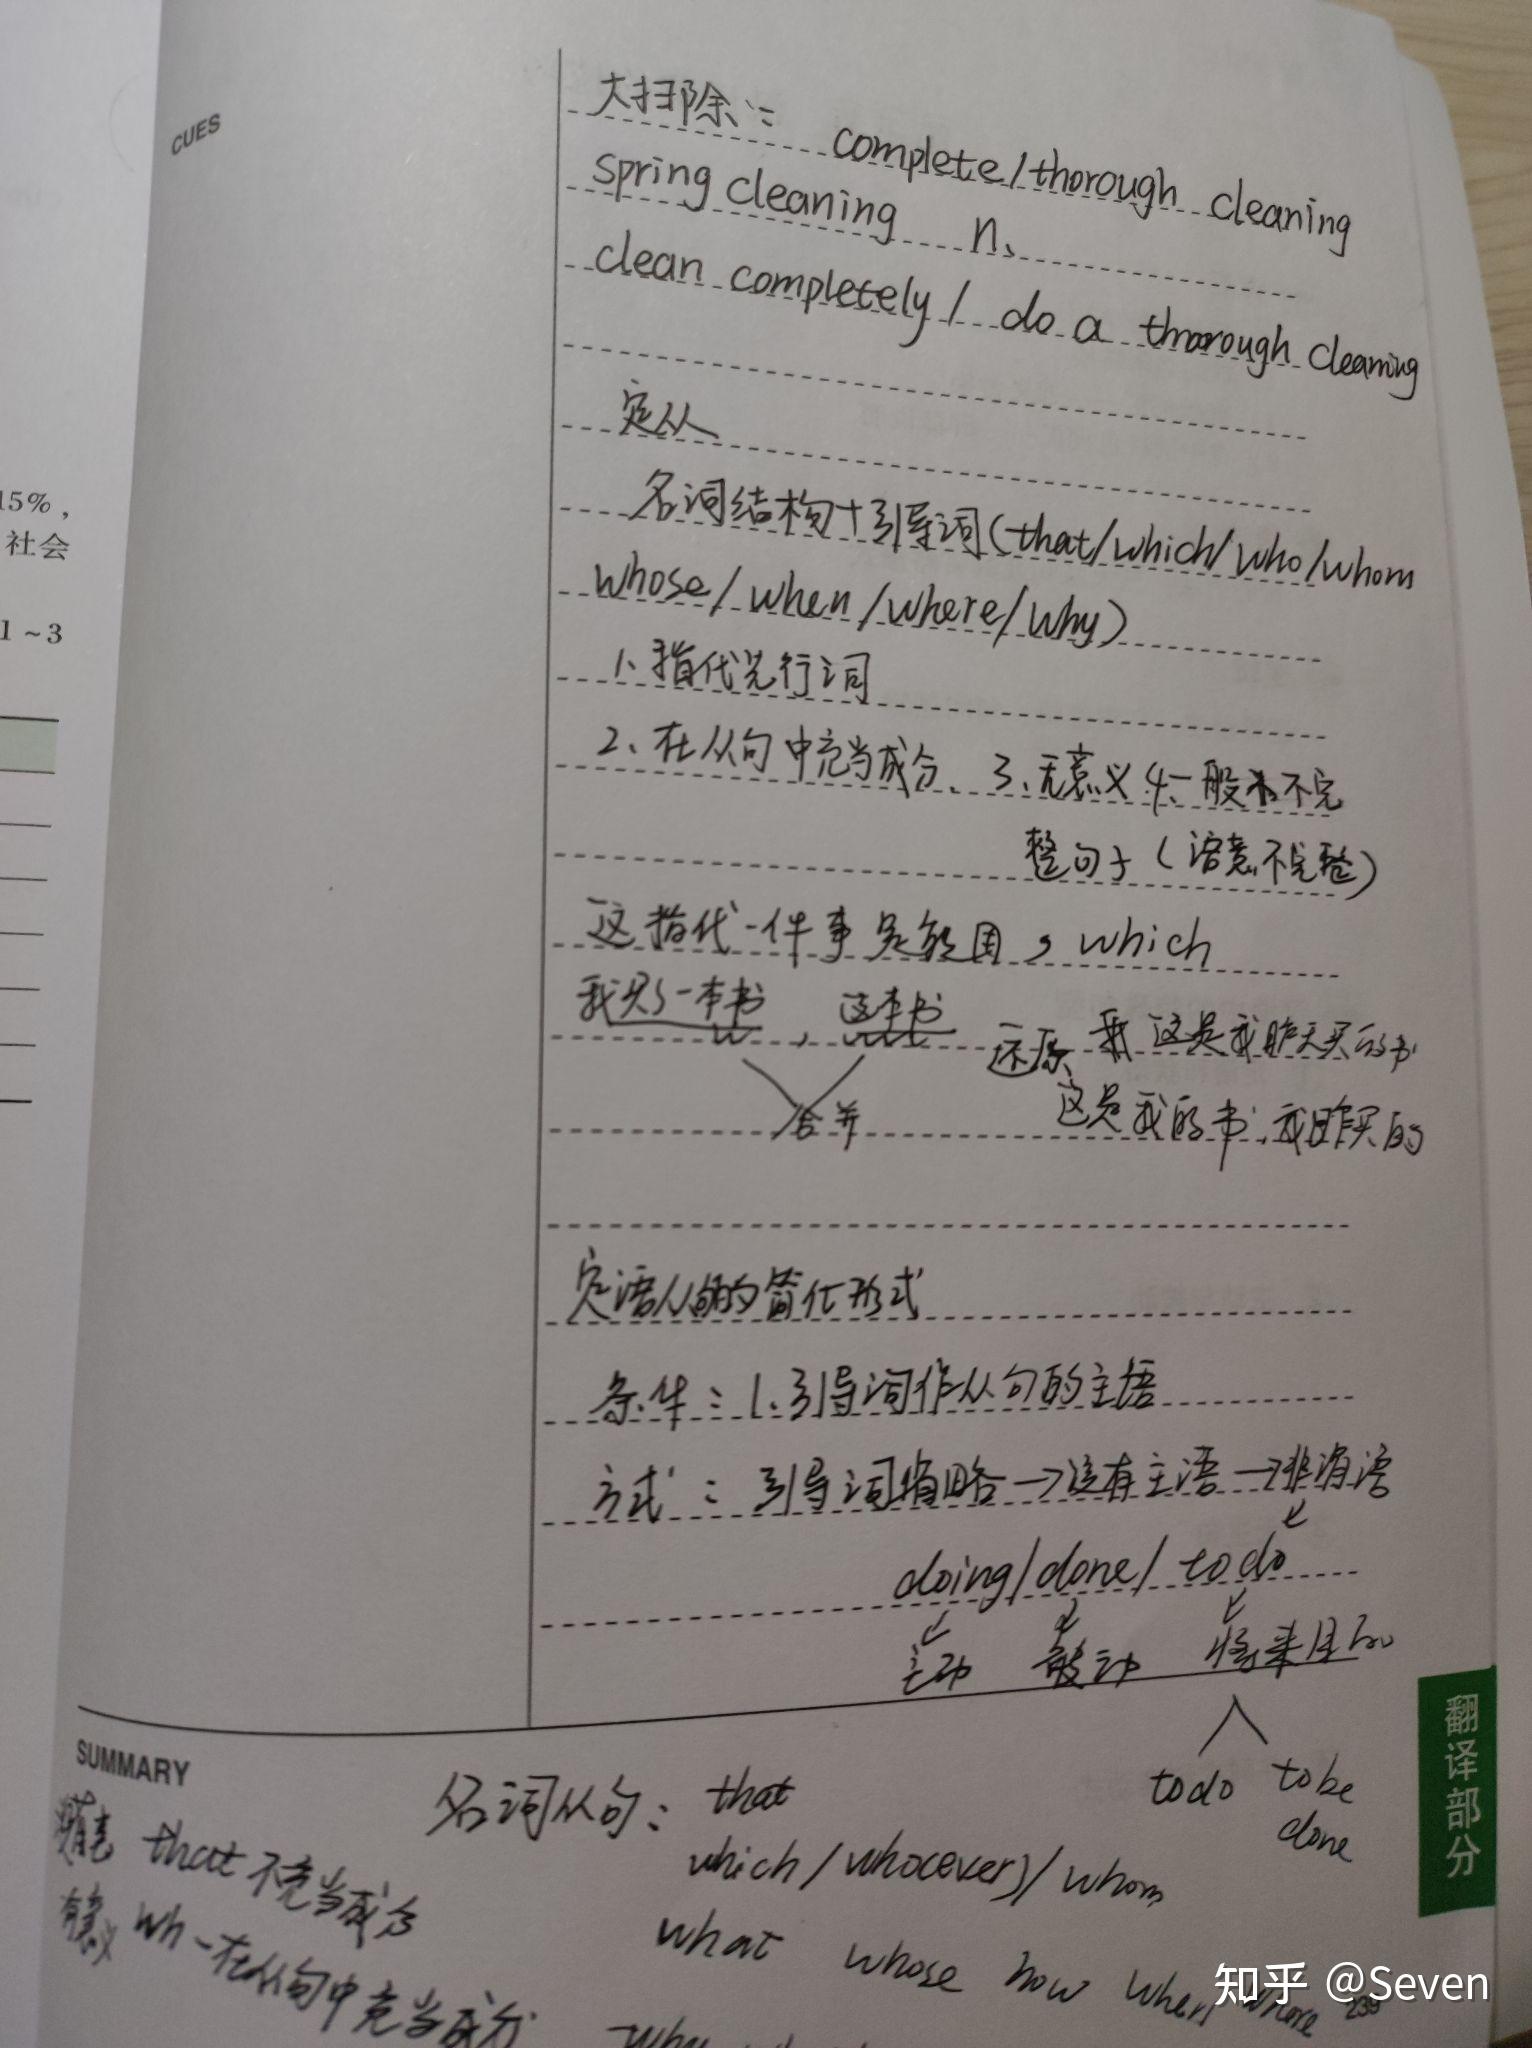 15%，
社会
1~3
CUES
大扫除：complete/thorough cleaning
spring cleaning n、
clean completely / do a thorough cleaning
定从
名词结构+引导词(that/which/who/whom
whose/when/where/why)
1、指代先行词
2、在从句中充当成分、3、无意义 4、一般不完
整句子(语意不完整)
这指代一件事 范围，which
我买了一本书，这本书 还原 我 这是我昨天买的书
合并 这是我的书，我昨买的
定语从句的简化形式
条件：1、引导词作从句的主语
方式：引导词省略→没有主语→非谓语
doing/done/to do
主动 被动 将来目的
to do to be
done
SUMMARY
名词从句：that
that 不充当成分
which/who(ever)/whom
有意义 wh-在从句中充当成分
what whose how when where
why
翻译部分
239
知乎 @Seven